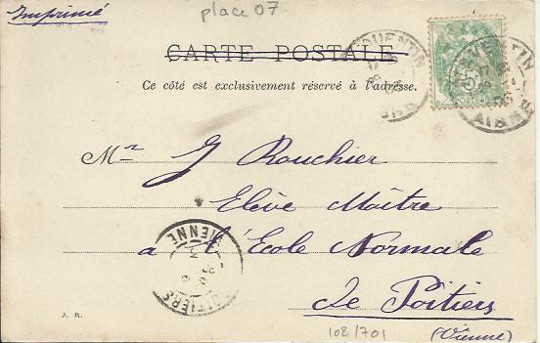 Imprimé
place 07
CARTE POSTALE
Ce côté est exclusivement réservé à l'adresse.
QUENTIN
AISNE
Mr J Rouchier
Elève Maître
a l'Ecole Normale
de Poitiers
(Vienne)
POITIERS
VIENNE
J. R.
102/701